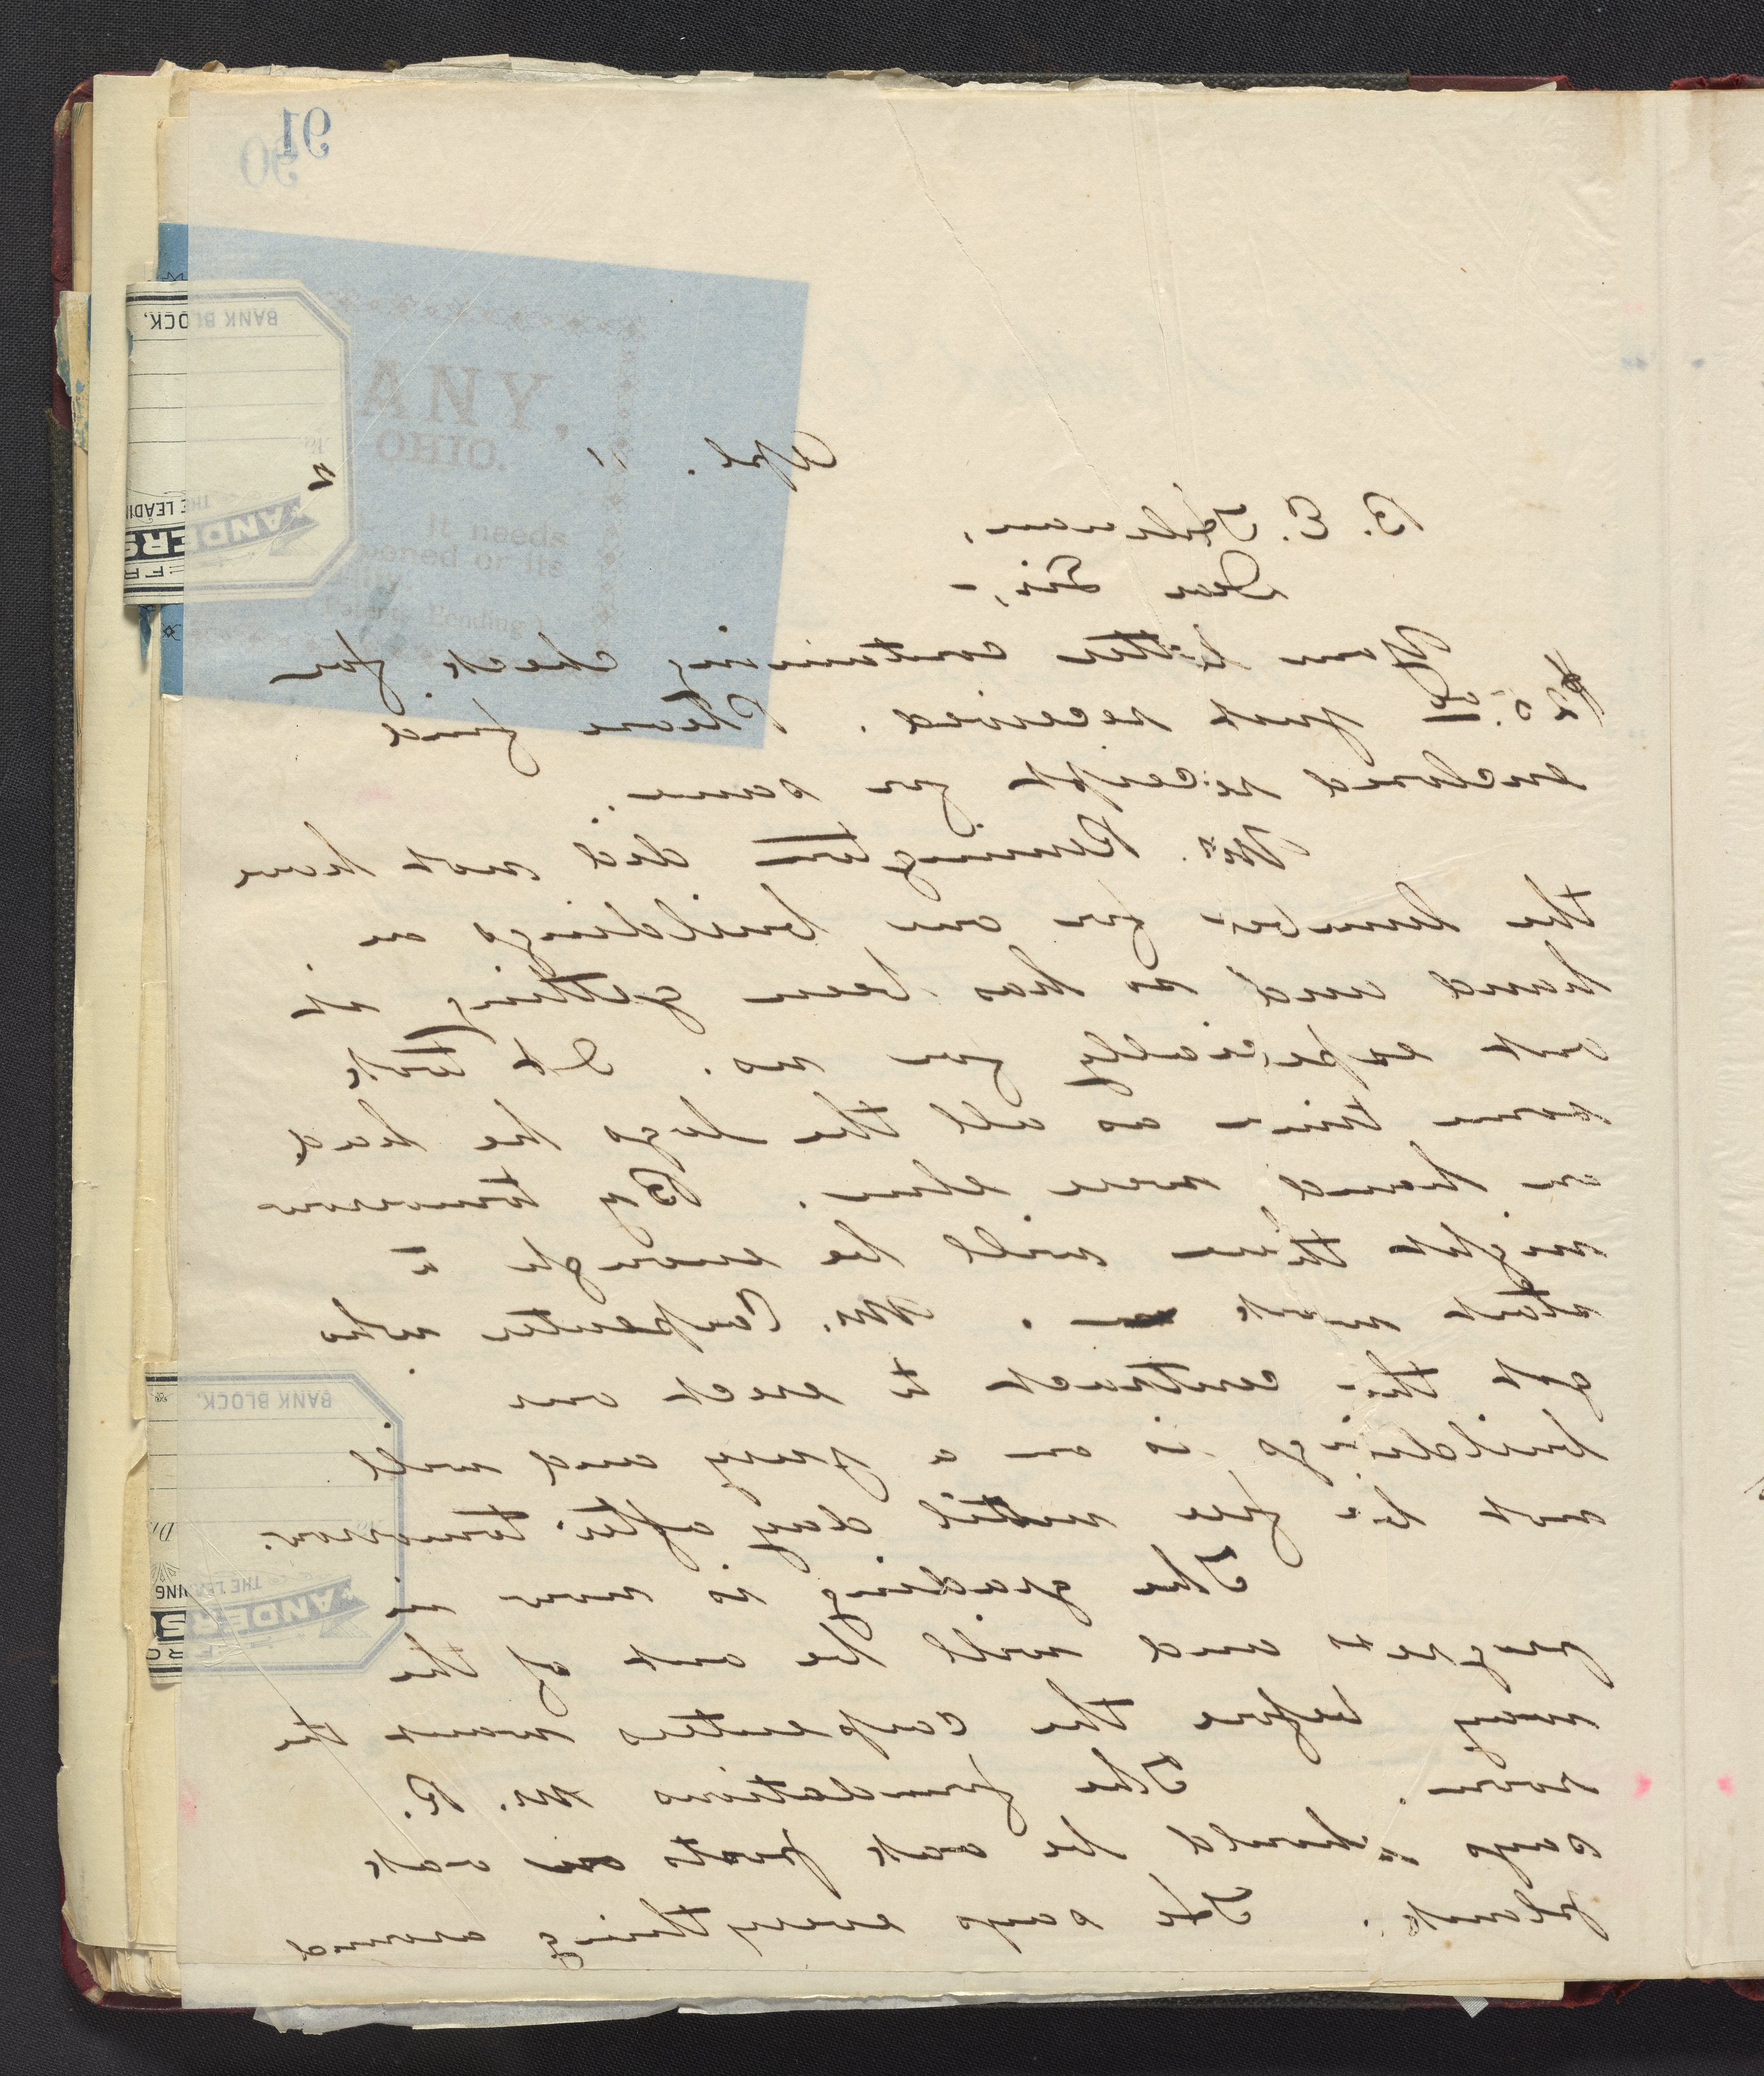 91
90
BANK BLOCK,
ANY,
OHIO.
THE LEADI
ANDERS
It needs
pened or its
Patents Pending
Apl. 11
B. E. Fernow,
Dear Sir,-
Your letter containing check for
just received. Please find
enclosed receipt for same.
Mr. Remington did not have
the lumber for our buildings on
hand and so has been getting it
out especially for us. It took
some time as all the logs he had
on hand were elm. By tomorrow
night there will be enough to
start work on. Mr. Carpenter who
got the contract to erect our
buildings is on a jury and will
not be free until day after tomorrow.
The grading is now in
progress and will be out of the
way before the carpenters want the
room. The foundations Mr. R.
says should be oak posts on oak
plank. He says everything around
BANK BLOCK,
THE LEA
ANDERS